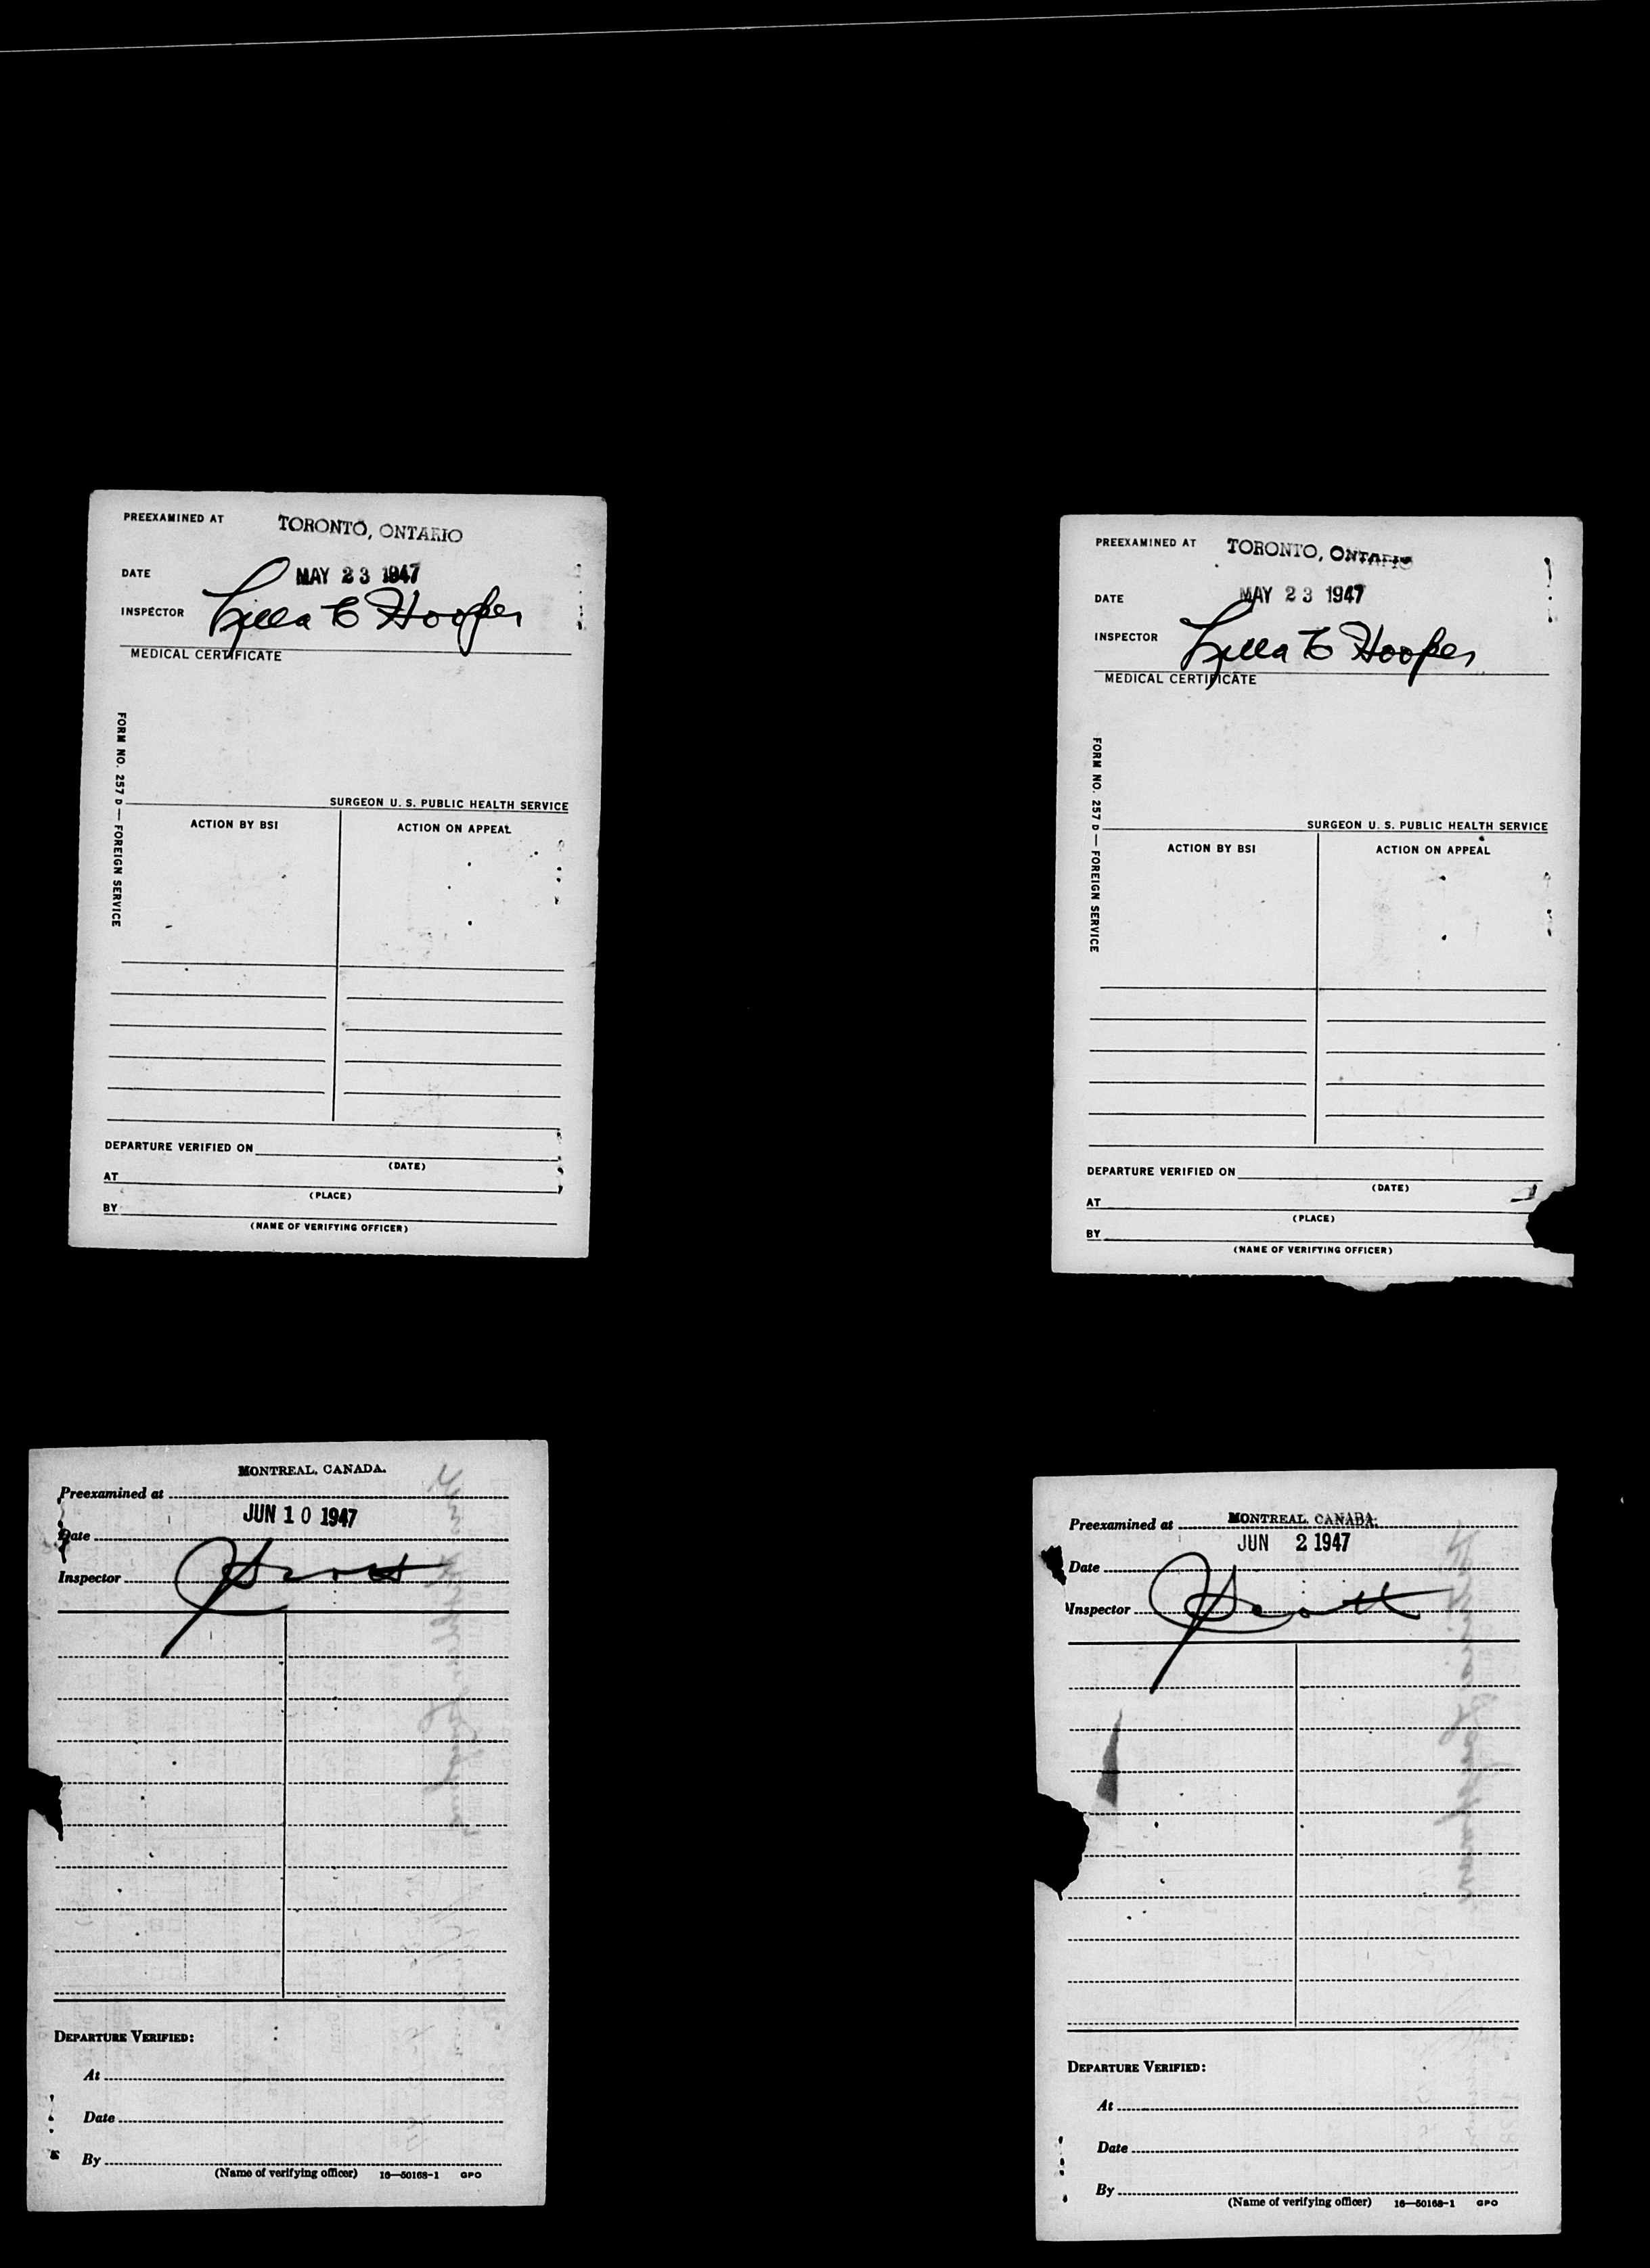 PREEXAMINED AT TORONTO, ONTARIO
DATE MAY 23 1947
INSPECTOR E Hooper
MEDICAL CERTIFICATE
FORM NO. 257 D — FOREIGN SERVICE
SURGEON U. S. PUBLIC HEALTH SERVICE
ACTION BY BSI ACTION ON APPEAL
DEPARTURE VERIFIED ON
(DATE)
AT
(PLACE)
BY
(NAME OF VERIFYING OFFICER)
PREEXAMINED AT TORONTO, ONTARIO
DATE MAY 23 1947
INSPECTOR E Hooper
MEDICAL CERTIFICATE
FORM NO. 257 D — FOREIGN SERVICE
SURGEON U. S. PUBLIC HEALTH SERVICE
ACTION BY BSI ACTION ON APPEAL
DEPARTURE VERIFIED ON
(DATE)
AT
(PLACE)
BY
(NAME OF VERIFYING OFFICER)
MONTREAL, CANADA.
Preexamined at
JUN 10 1947
Date
Inspector Scott
DEPARTURE VERIFIED:
At
Date
By
(Name of verifying officer) 16—50168-1 GPO
Preexamined at MONTREAL, CANADA.
JUN 2 1947
Date
Inspector Scott
DEPARTURE VERIFIED:
At
Date
By
(Name of verifying officer) 16—50168-1 GPO